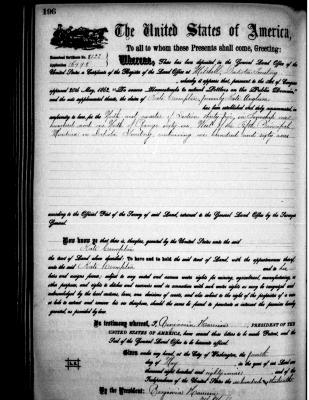 196
The United States of America,
To all to whom these Presents shall come, Greeting:
Homestead Certificate No.
Application
Whereas, There has been deposited in the General Land Office of the
United States a Certificate of the Register of the Land Office at Mitchell, Dakota Territory
, whereby it appears that, pursuant to the Act of Congress
approved 20th May, 1862, "To secure Homesteads to actual Settlers on the Public Domain,"
and the acts supplemental thereto, the claim of Kate formerly Kate
has been established and duly consummated, in
conformity to law, for the North quarter of Section thirty four, in Township one
hundred and North of Range sixty six West of the Fifth Principal
Meridian in Dakota Territory containing one hundred and sixty acres
according to the Official Plat of the Survey of said Land, returned to the General Land Office by the Surveyor
General.
Now know ye, that there is, therefore, granted by the United States unto the said
Kate
the tract of Land above described: To have and to hold the said tract of Land, with the appurtenances thereof,
unto the said Kate and to her
heirs and assigns forever; subject to any vested and accrued water rights for mining, agricultural, manufacturing, or
other purposes, and rights to ditches and reservoirs used in connection with such water rights as may be recognized and
acknowledged by the local customs, laws, and decisions of courts, and also subject to the right of the proprietor of a vein
or lode to extract and remove his ore therefrom, should the same be found to penetrate or intersect the premises hereby
granted, as provided by law.
In testimony whereof, I, Benjamin Harrison, PRESIDENT OF THE
UNITED STATES OF AMERICA, have caused these letters to be made Patent, and the
Seal of the General Land Office to be hereunto affixed.
Given under my hand, at the City of Washington, the
day of, in the year of our Lord one
thousand eight hundred and eighty-nine, and of the
Independence of the United States the one hundred and thirteenth
By the President: Benjamin Harrison